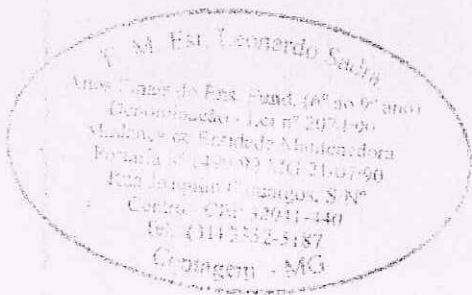 E. M. Est. Leonardo Sadra
Anos Finais do Ens. Fund. (6º ao 9º ano)
Denominação - Lei nº
Mudança de Entidade Mantenedora
Portaria nº MG 21-07-90
Rua Joaquim S/Nº
Centro - CEP 32041-440
Tel: (31) 3352-5187
Contagem - MG